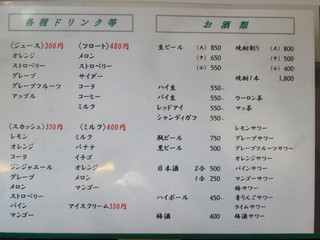 各種ドリンク等
〈ジュース〉300円
オレンジ
ストロベリー
グレープ
グレープフルーツ
アップル
〈フロート〉480円
メロン
ストロベリー
サイダー
コーラ
コーヒー
ミルク
〈スカッシュ〉350円
レモン
オレンジ
コーラ
ジンジャエール
グレープ
メロン
ストロベリー
パイン
マンゴー
〈ミルク〉400円
ミルク
バナナ
イチゴ
オレンジ
メロン
マンゴー
アイスクリーム350円
お酒類
生ビール (大) 850
(中) 650
(小) 350
ハイ生 550
パイ生 550
レッドアイ 550
シャンディガフ 550
瓶ビール 750
黒ビール 500
日本酒 2合 500
1合 250
ハイボール 450
梅酒 400
焼酎割り (大) 800
(中) 500
(小) 400
焼酎1本 1,800
ウーロン茶
マッ茶
レモンサワー
グレープサワー
グレープフルーツサワー
オレンジサワー
パインサワー
マンゴーサワー
梅サワー
青りんごサワー
ライムサワー
梅酒サワー